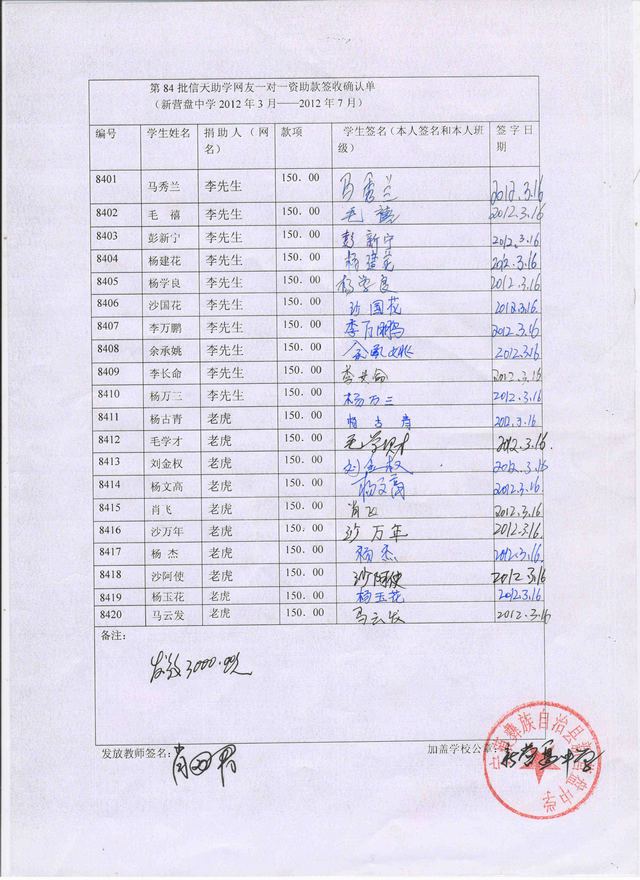 第84批信天助学网友一对一资助款签收确认单
（新营盘中学2012年3月——2012年7月）
编号 学生姓名 捐助人（网名） 款项 学生签名（本人签名和本人班级） 签字日期
8401 马秀兰 李先生 150.00 马秀兰 2012.3.16
8402 毛 禧 李先生 150.00 毛禧 2012.3.16
8403 彭新宁 李先生 150.00 彭新宁 2012.3.16
8404 杨建花 李先生 150.00 杨建花 2012.3.16
8405 杨学良 李先生 150.00 杨学良 2012.3.16
8406 沙国花 李先生 150.00 沙国花 2012.3.16
8407 李万鹏 李先生 150.00 李万鹏 2012.3.16
8408 余承姚 李先生 150.00 余承姚 2012.3.16
8409 李长命 李先生 150.00 李长命 2012.3.16
8410 杨万三 李先生 150.00 杨万三 2012.3.16
8411 杨古青 老虎 150.00 杨古青 2012.3.16
8412 毛学才 老虎 150.00 毛学才 2012.3.16
8413 刘金权 老虎 150.00 刘金权 2012.3.16
8414 杨文高 老虎 150.00 杨文高 2012.3.16
8415 肖飞 老虎 150.00 肖飞 2012.3.16
8416 沙万年 老虎 150.00 沙万年 2012.3.16
8417 杨 杰 老虎 150.00 杨杰 2012.3.16
8418 沙阿使 老虎 150.00 沙阿使 2012.3.16
8419 杨玉花 老虎 150.00 杨玉花 2012.3.16
8420 马云发 老虎 150.00 马云发 2012.3.16
备注：
发放3000.00元
发放教师签名： 加盖学校公章： 新营盘中学
彝族自治县新营盘中学